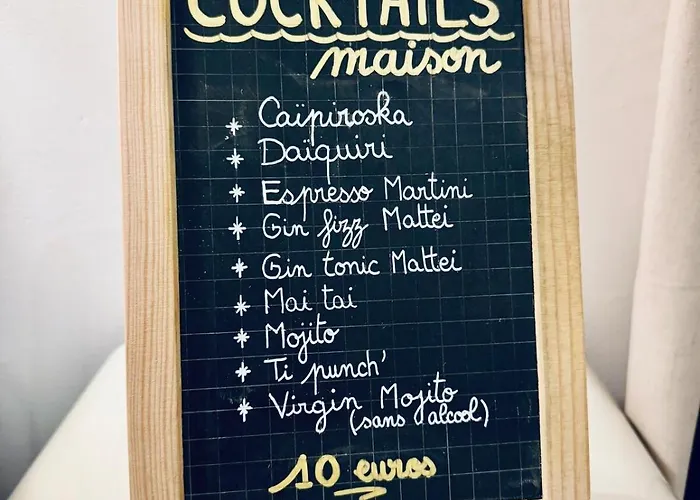 COCKTAILS
maison
* Caïpiroska
* Daïquiri
* Espresso Martini
* Gin fizz Mattei
* Gin tonic Mattei
* Mai tai
* Mojito
* Ti punch'
* Virgin Mojito
(sans alcool)
10 euros